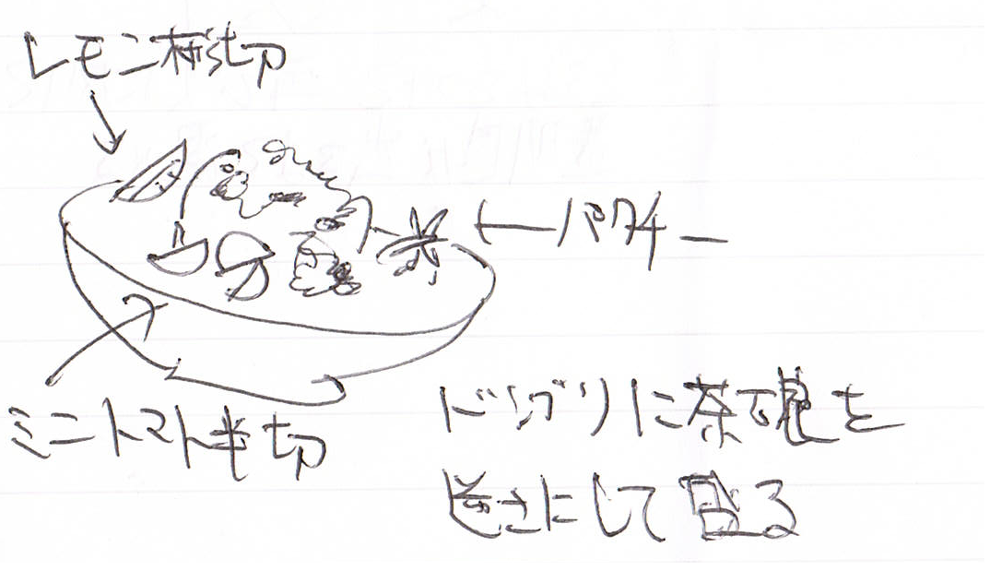 レモン櫛切
パクチー
ミニトマト半切
ドンブリに茶碗を
逆さにして盛る